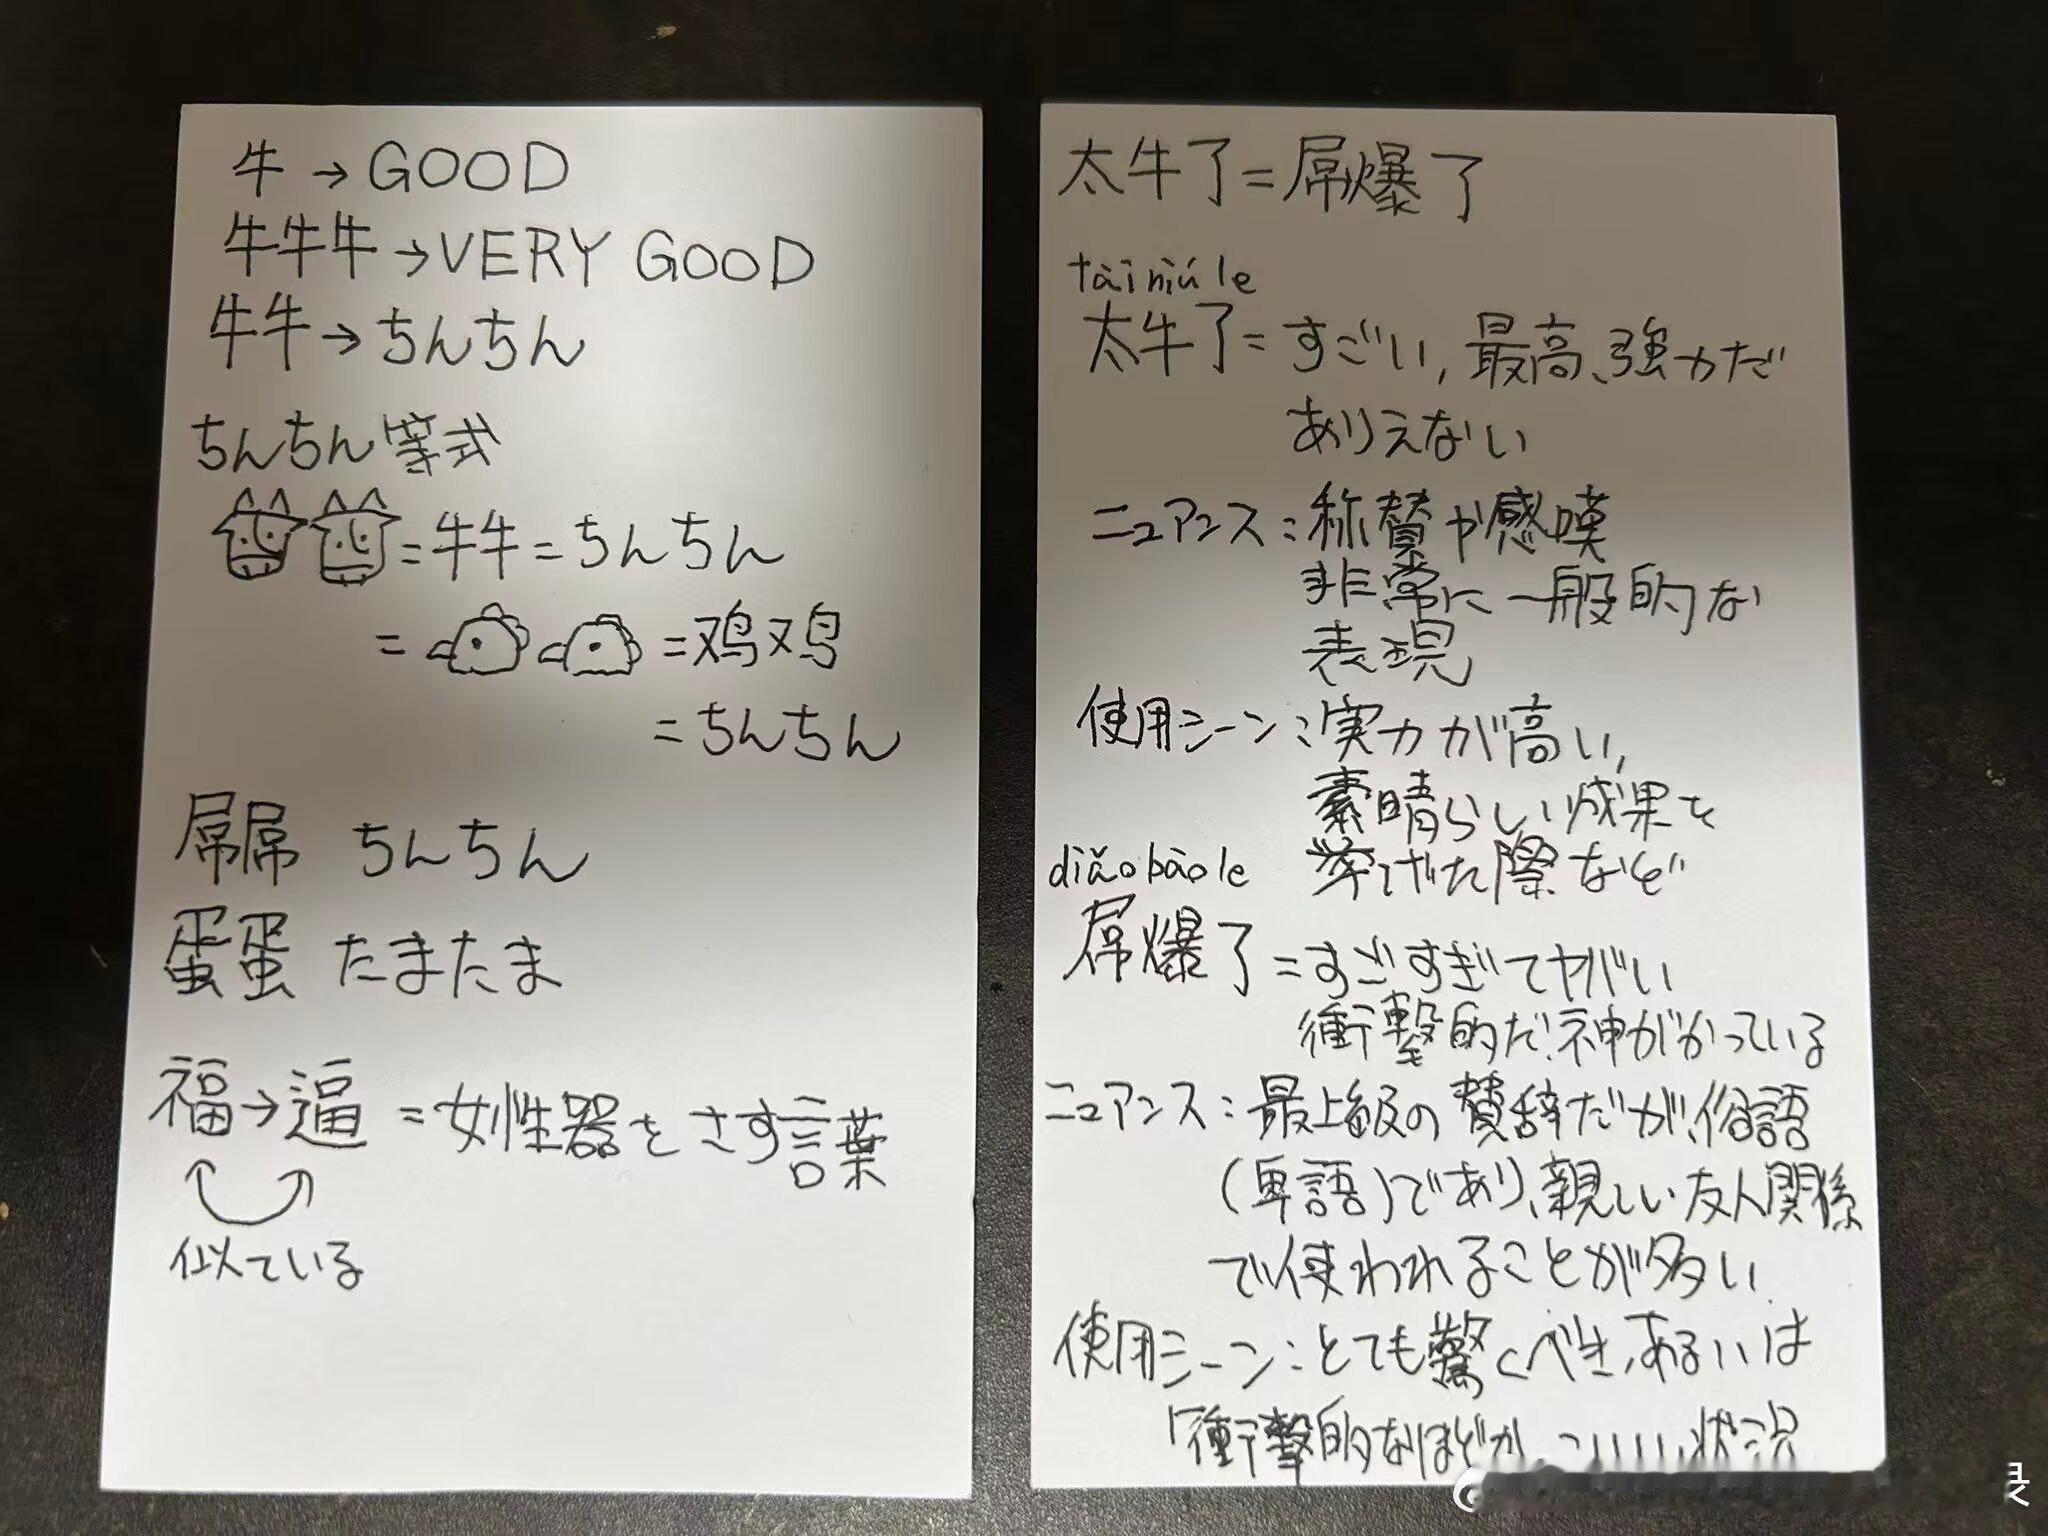 牛→GOOD
牛牛牛→VERY GOOD
牛牛→ちんちん
ちんちん等式
=牛牛=ちんちん
= =鸡鸡
=ちんちん
屌屌 ちんちん
蛋蛋 たまたま
福→逼=女性器をさす言葉
似ている
太牛了=屌爆了
tài niú le
太牛了=すごい,最高、強力だ
ありえない
ニュアンス:称賛や感嘆
非常に一般的な
表現
使用シーン:実力が高い,
素晴らしい成果を
挙げた際など
diǎo bào le
屌爆了=すごすぎてヤバい
衝撃的だ、神がかっている
ニュアンス:最上級の賛辞だが、俗語
(卑語)であり、親しい友人関係
で使われることが多い
使用シーン:とても驚くべき、あるいは
「衝撃的なほどかっこいい」状況